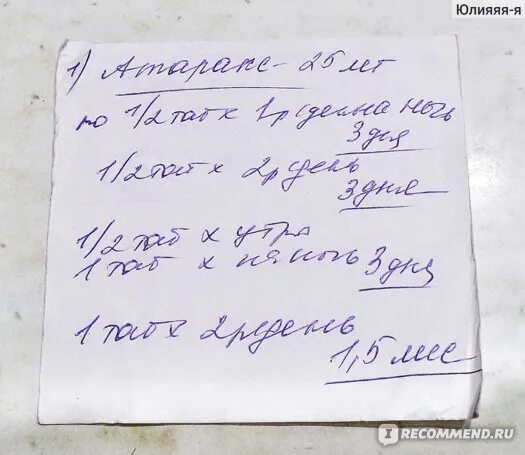 Юлияяя-я
1) Атаракс - 25 мг
по 1/2 таб х 1р/день на ночь
3 дня
1/2 таб х 2р/день
3 дня
1/2 таб х утро
1 таб х на ночь 3 дня
1 таб х 2р/день
1,5 мес
IRECOMMEND.RU